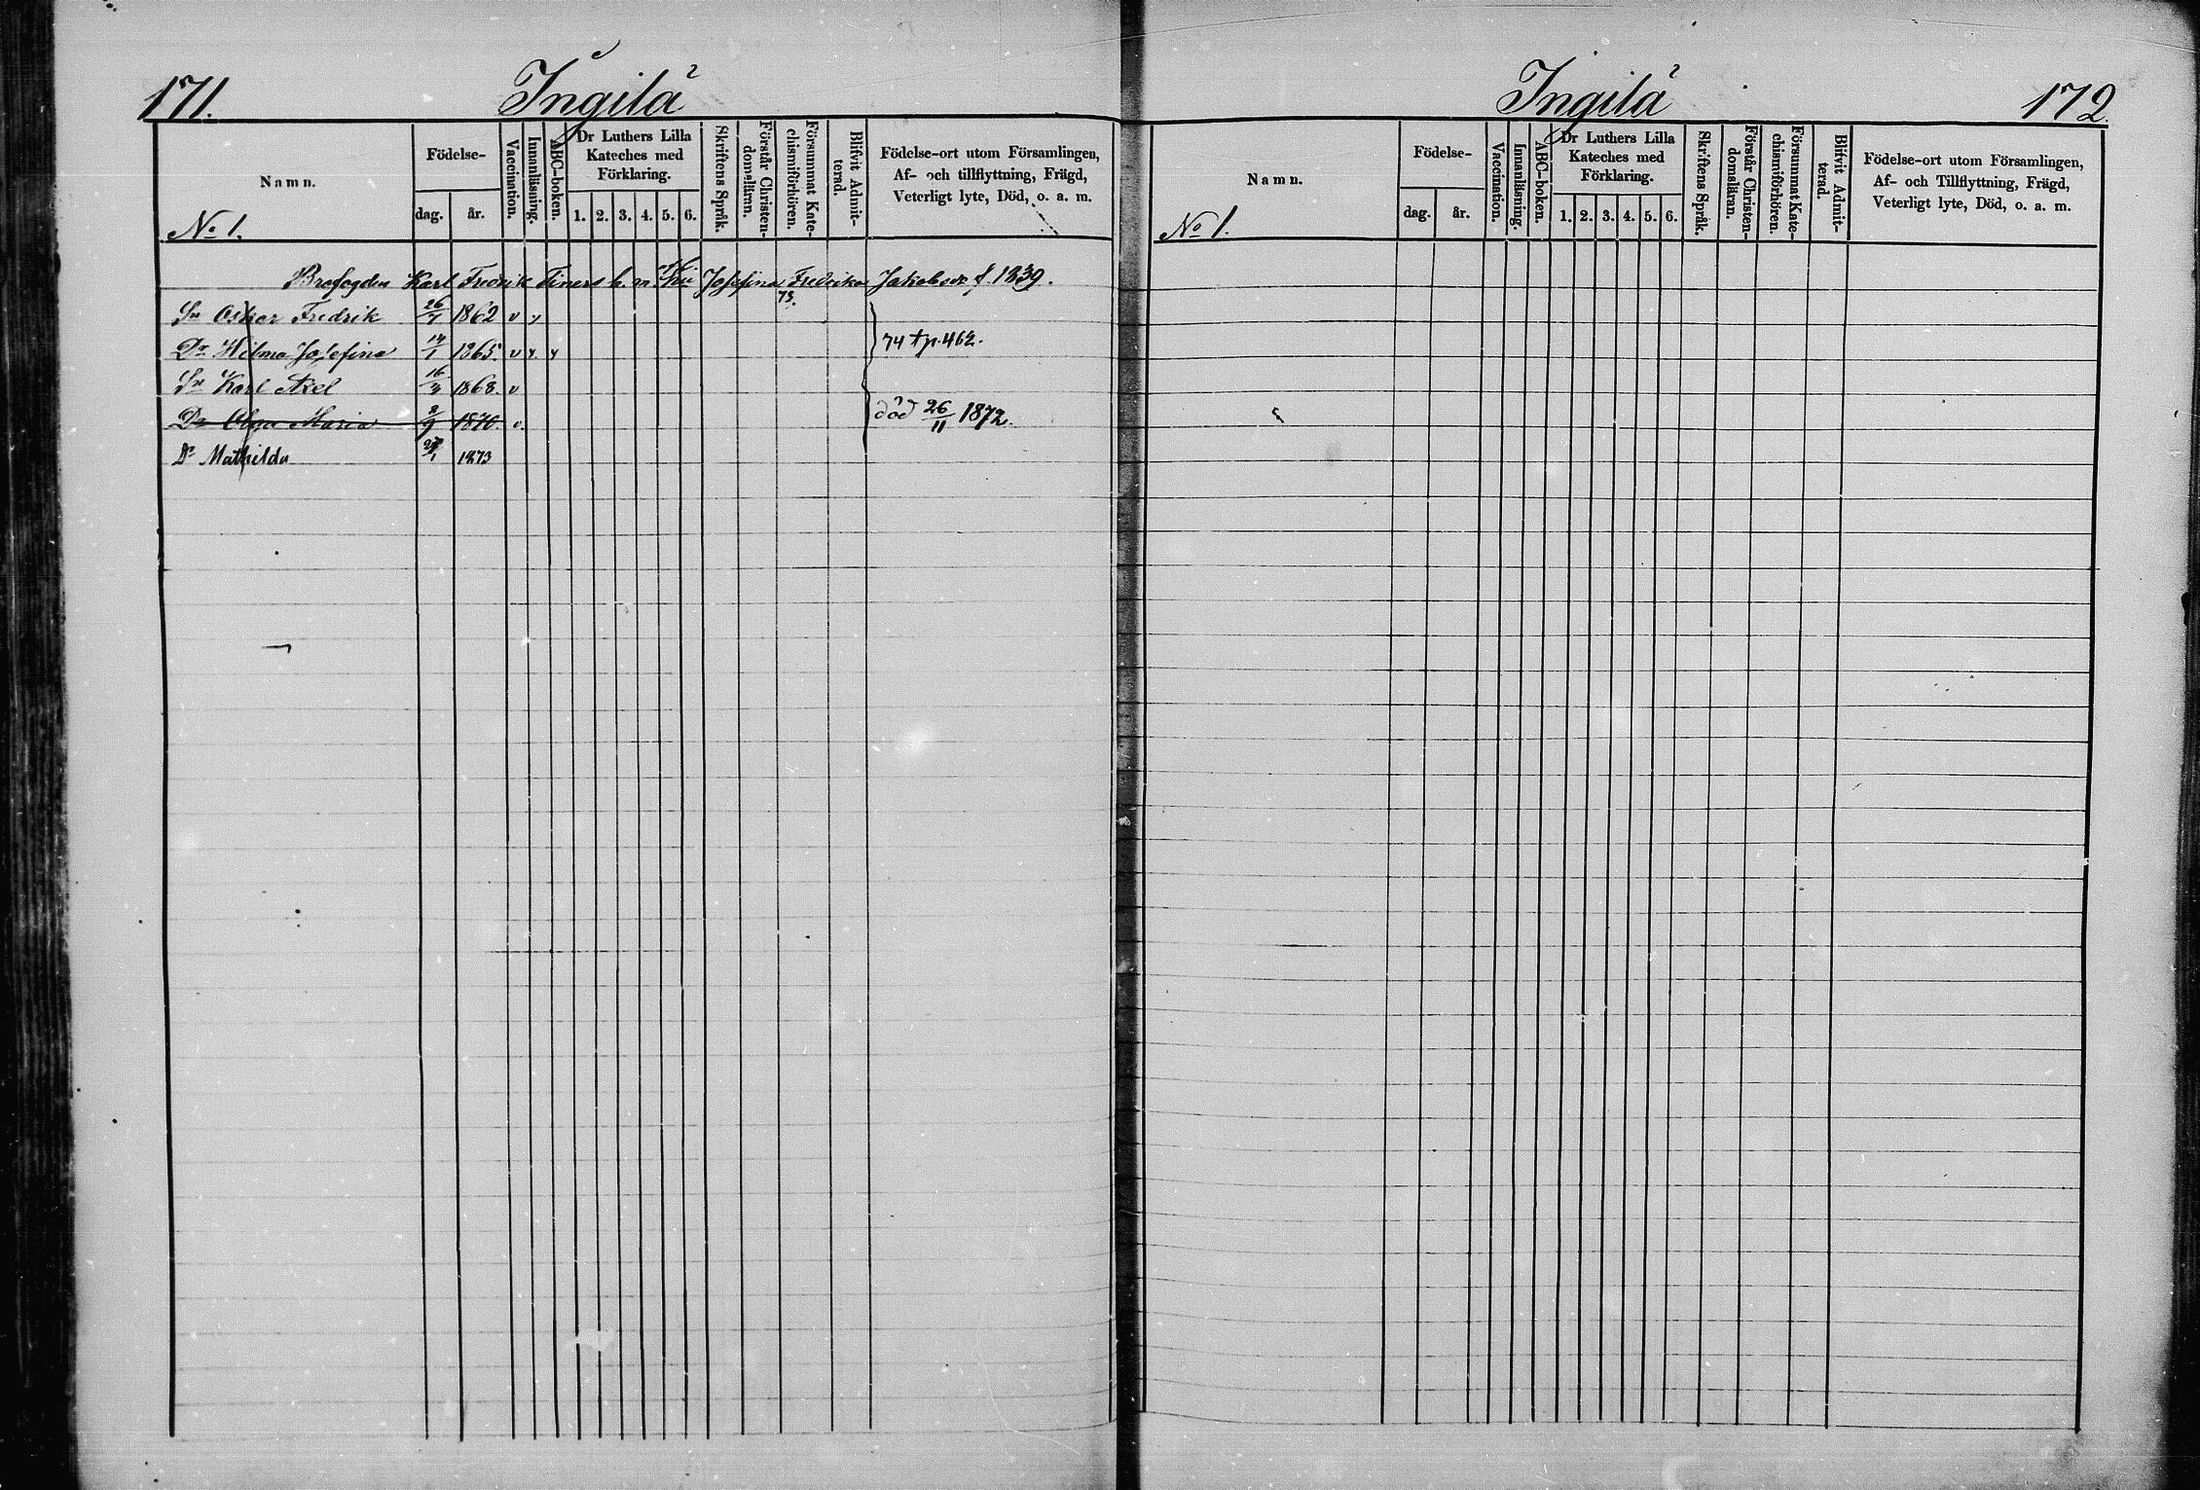 171. Ingilä
Namn.
No 1.
Födelse-
dag. år.
Vaccination.
Innanläsning.
ABC-boken.
Dr Luthers Lilla
Kateches med
Förklaring.
1. 2. 3. 4. 5. 6.
Skriftens Språk.
Förstår Christen-
domsläran.
Försummat Kate-
chismiförhören.
Blifvit Admit-
terad.
Födelse-ort utom Församlingen,
Af- och tillflyttning, Frägd,
Veterligt lyte, Död, o. a. m.
Karl Fredrik b. m. Josefina Fredrika f. 1839.
73.
Sn Oskar Fredrik 26/1 1862 v y
Dr Hilma Josefina 14/1 1865. v y. y 74 p. 462.
Sn Karl Axel 1868. v
Dr Olga Maria 2/9 1870. v. död 26/11 1872.
Dr Mathilda 1873
Ingilä 172.
Namn.
No 1.
Födelse-
dag. år.
Vaccination.
Innanläsning.
ABC-boken.
Dr Luthers Lilla
Kateches med
Förklaring.
1. 2. 3. 4. 5. 6.
Skriftens Språk.
Förstår Christen-
domsläran.
Försummat Kate-
chismiförhören.
Blifvit Admit-
terad.
Födelse-ort utom Församlingen,
Af- och Tillflyttning, Frägd,
Veterligt lyte, Död, o. a. m.